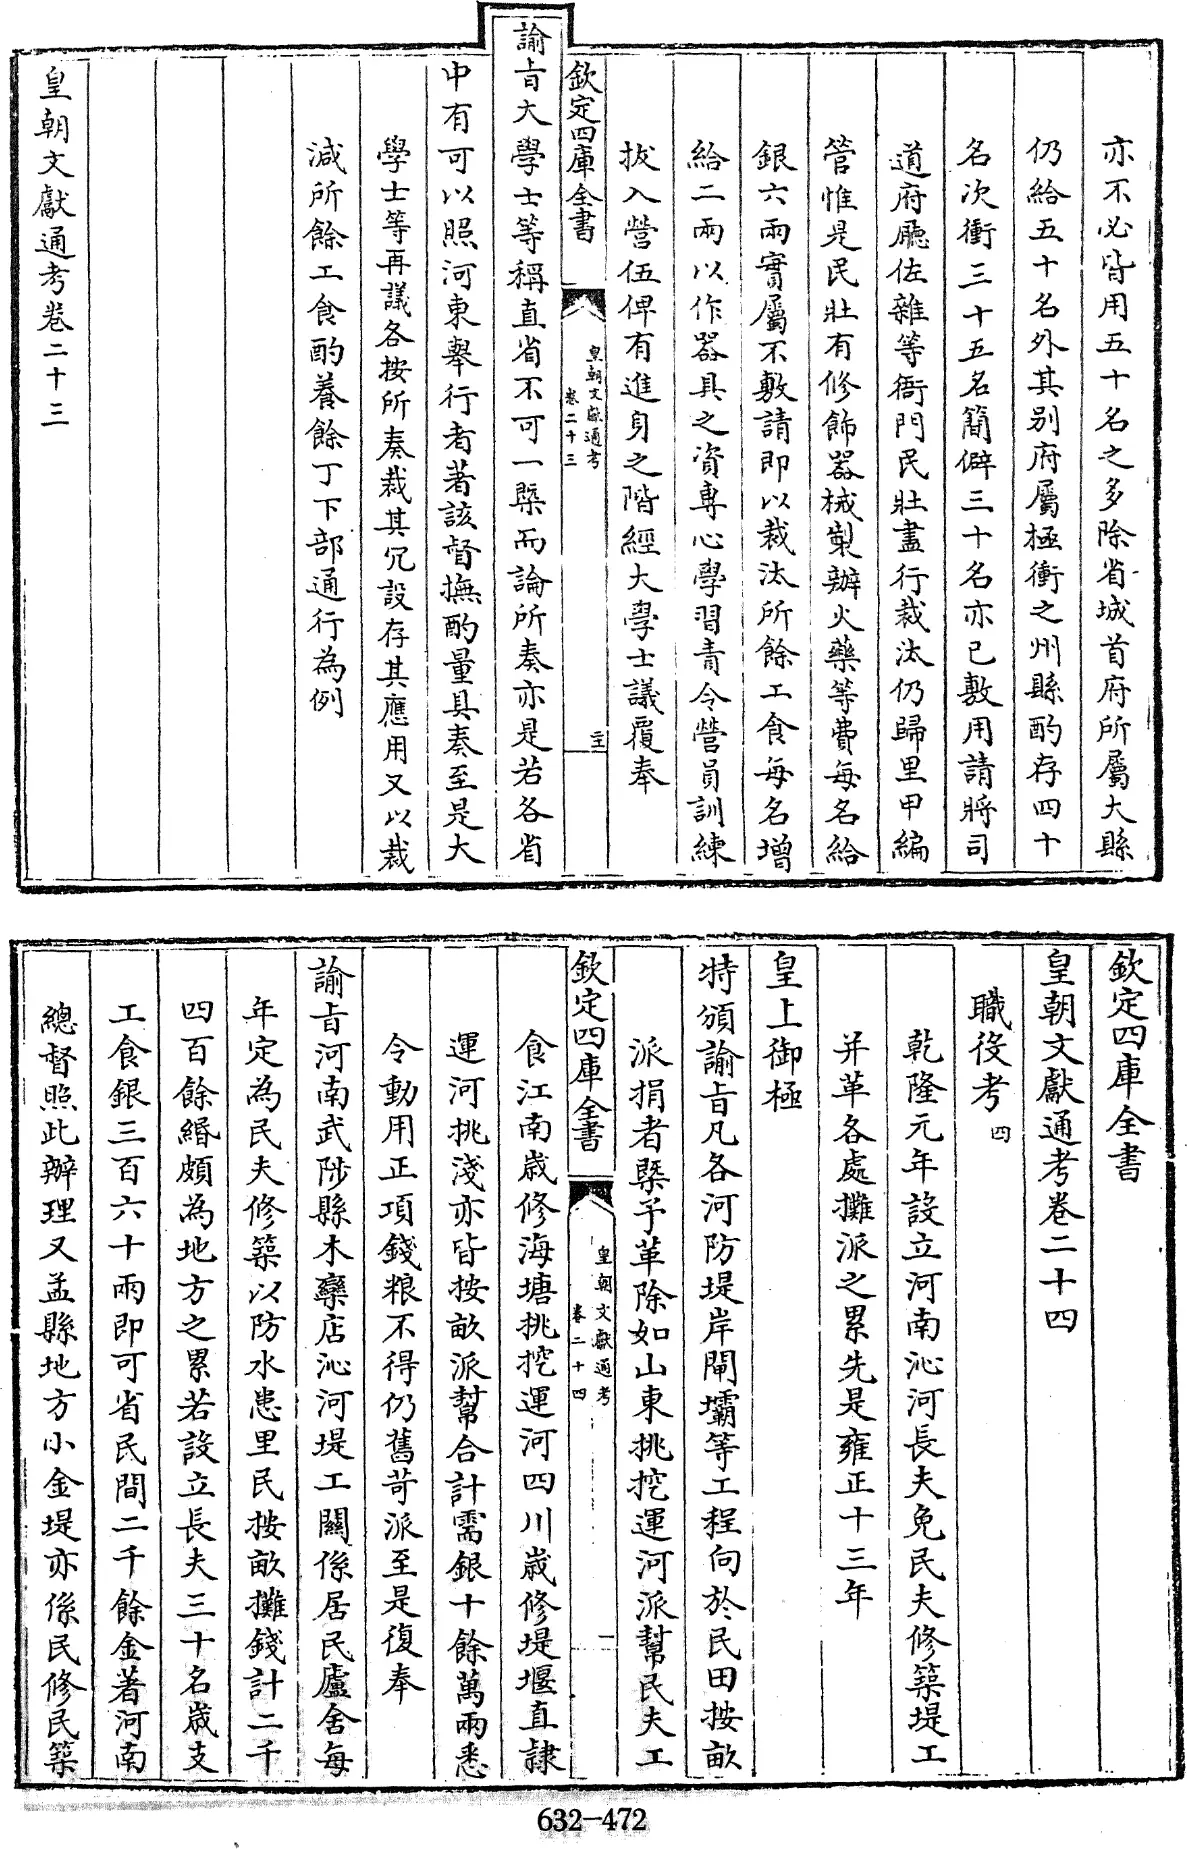 亦不必皆用五十名之多除省城首府所屬大縣
仍給五十名外其别府屬極衝之州縣酌存四十
名次衝三十五名簡僻三十名亦已敷用請將司
道府廳佐雜等衙門民壯盡行裁汰仍歸里甲編
管惟是民壯有修飾器械製辦火藥等費每名給
銀六兩實屬不敷請即以裁汰所餘工食每名增
給二兩以作器具之資專心學習責令營員訓練
拔入營伍俾有進身之階經大學士議覆奉
欽定四庫全書
皇朝文獻通考
卷二十三
諭旨大學士等稱直省不可一槩而論所奏亦是若各省
中有可以照河東舉行者著該督撫酌量具奏至是大
學士等再議各按所奏裁其冗設存其應用又以裁
減所餘工食酌養餘丁下部通行為例
皇朝文獻通考卷二十三
欽定四庫全書
皇朝文獻通考卷二十四
職役考四
乾隆元年設立河南沁河長夫免民夫修築堤工
并革各處攤派之累先是雍正十三年
皇上御極
特頒諭旨凡各河防堤岸閘壩等工程向於民田按畝
派捐者槩予革除如山東挑挖運河派幫民夫工
欽定四庫全書
皇朝文獻通考
卷二十四
一
食江南歲修海塘挑挖運河四川歲修堤堰直隷
運河挑淺亦皆按畝派幫合計需銀十餘萬兩悉
令動用正項錢粮不得仍舊苛派至是復奉
諭旨河南武陟縣木欒店沁河堤工關係居民廬舍每
年定為民夫修築以防水患里民按畝攤錢計二千
四百餘緡頗為地方之累若設立長夫三十名歲支
工食銀三百六十兩即可省民間二千餘金著河南
總督照此辦理又孟縣地方小金堤亦係民修民築
632-472